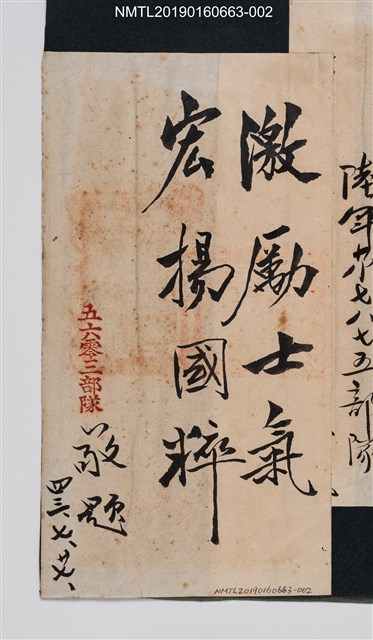 NMTL20190160663-002
激勵士氣
宏揚國粹
五六零三部隊
敬題
四三、七、廿七、
NMTL20190160663-002
陸軍
七八七五部隊